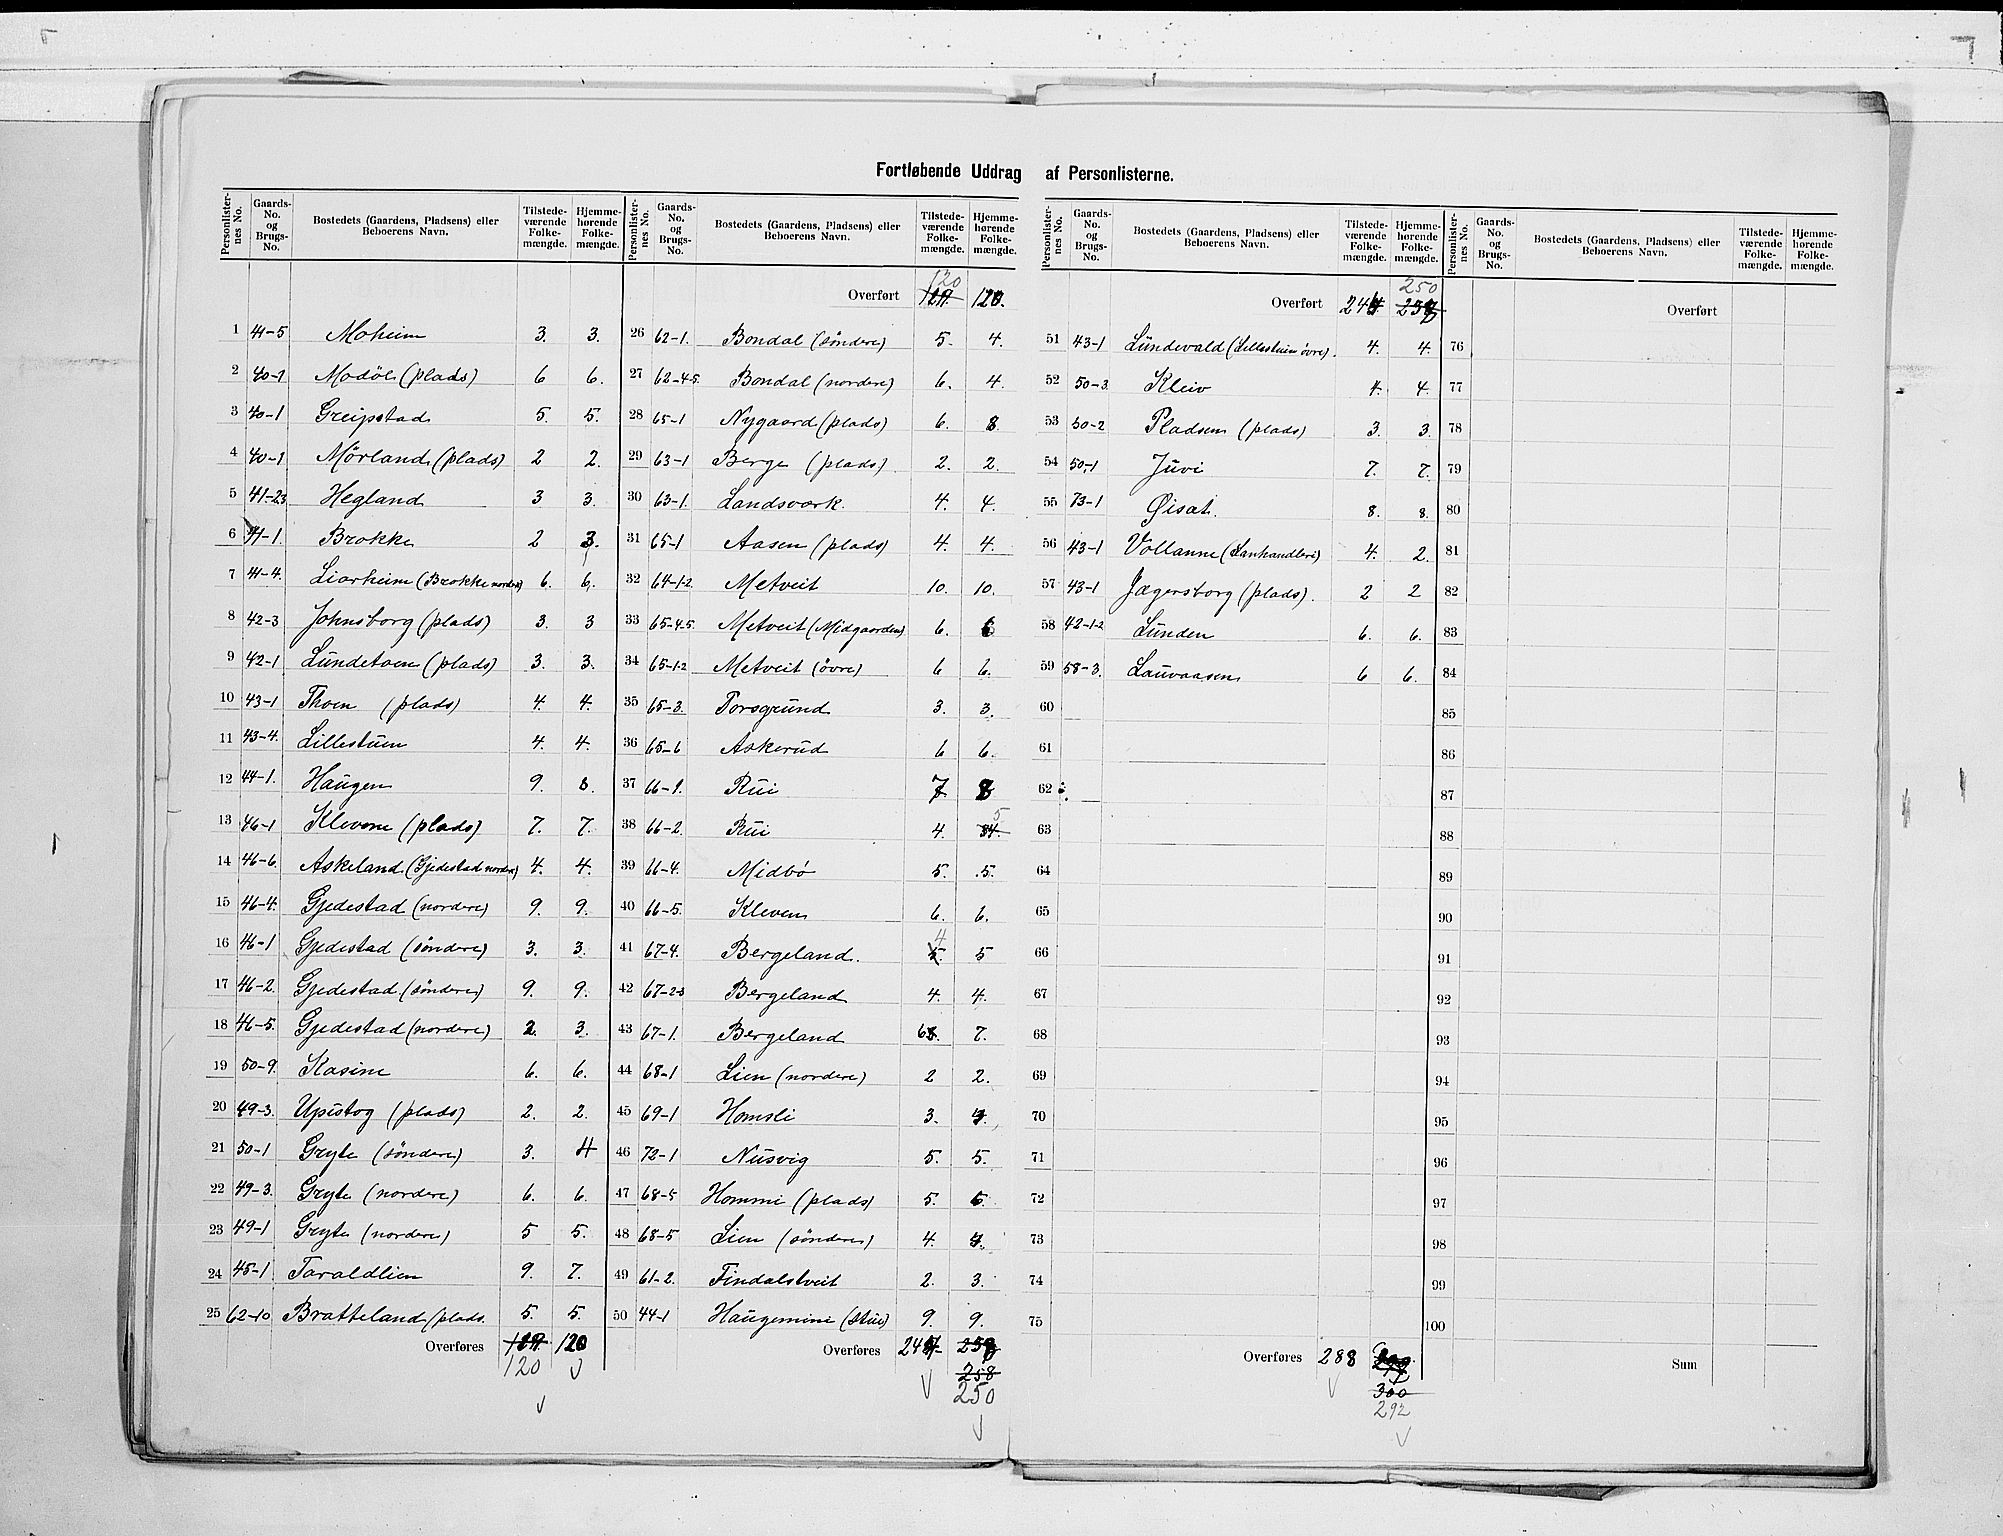 Fortløbende Uddrag af Personlisterne.
Personlister-nes No. | Gaards-No. og Brugs-No. | Bostedets (Gaardens, Pladsens) eller Beboerens Navn. | Tilstede-værende Folke-mængde. | Hjemme-hørende Folke-mængde.
1 41-5 Moheim 3. 3.
2 40-1 Modöl (plads) 6 6.
3 40-1 Greipstad 5. 5.
4 40-1 Mörland (plads) 2 2.
5 41-23 Hegland 3 3.
6 41-1. Brokke 2 3.
7 41-4. Liarheim (Brokke nordre) 6. 6.
8 42-3 Johnsborg (plads) 3. 3
9 42-1 Lundetoen (plads) 3. 3.
10 43-1 Thoen (plads) 4. 4.
11 43-4. Lillestuen 4. 4.
12 44-1. Haugen 9. 8.
13 46-1 Klevene (plads) 7. 7.
14 46-6. Askeland (Gjedestad nordre) 4. 4.
15 46-4. Gjedestad (nordere) 9. 9.
16 46-1 Gjedestad (söndere) 3. 3.
17 46-2. Gjedestad (söndere) 9. 9.
18 46-5. Gjedestad (nordere) 2. 3.
19 50-9. Kasine 6. 6.
20 49-3. Upistog (plads) 2. 2.
21 50-1 Gryte (söndere) 3. 4
22 49-3. Gryte (nordere) 6. 6.
23 49-1 Gryte (nordere) 5 5.
24 45-1 Taraldlien 9. 7.
25 62-10 Bratteland (plads. 5. 5.
Overføres 120 120
Overført 120 120.
26 62-1. Bondal (söndere) 5. 4.
27 62-4-5. Bondal (nordere) 6. 4.
28 65-1 Nygaard (plads) 6. 8.
29 63-1 Berge (plads) 2. 2.
30 63-1. Landsvark. 4. 4.
31 65-1 Aasen (plads) 4. 4.
32 64-1-2. Metveit 10. 10.
33 65-4-5. Metveit (Midgaarden) 6. 6
34 65-1-2 Metveit (övre) 6 6.
35 65-3. Porsgrund 3. 3.
36 65-6 Askerud 6 6.
37 66-1. Rui 7 8
38 66-2. Rui 4. 5
39 66-4. Midbö 5. 5.
40 66-5. Kleven 6. 6.
41 67-4. Bergeland. 4 5
42 67-2-3 Bergeland 4. 4.
43 67-1. Bergeland 6. 7.
44 68-1 Lien (nordere) 2 2.
45 69-1 Homsli 3. 4.
46 72-1 Nusvig 5. 5.
47 68-5 Hommi (plads) 5. 6.
48 68-5 Lien (söndere) 4. 4.
49 61-2. Findalstveit 2. 3.
50 44-1 Haugemine (Stue) 9. 9.
Overføres 244 258 250
Overført 244 250
51 43-1 Lundevald (Lillestuen övre). 4. 4.
52 50-3. Kleiv 4. 4.
53 50-2 Pladsen (plads) 3. 3.
54 50-1 Juvi 7. 7.
55 73-1 Øisat. 8. 8.
56 43-1 Vollanne (Lanhandleri) 4. 2.
57 43-1 Jægersborg (plads). 2 2
58 42-1-2 Lunden 6. 6.
59 58-3. Lauvaasen 6 6.
60
61
62
63
64
65
66
67
68
69
70
71
72
73
74
75
Overføres 288 300 292
Overført
76
77
78
79
80
81
82
83
84
85
86
87
88
89
90
91
92
93
94
95
96
97
98
99
100
Sum